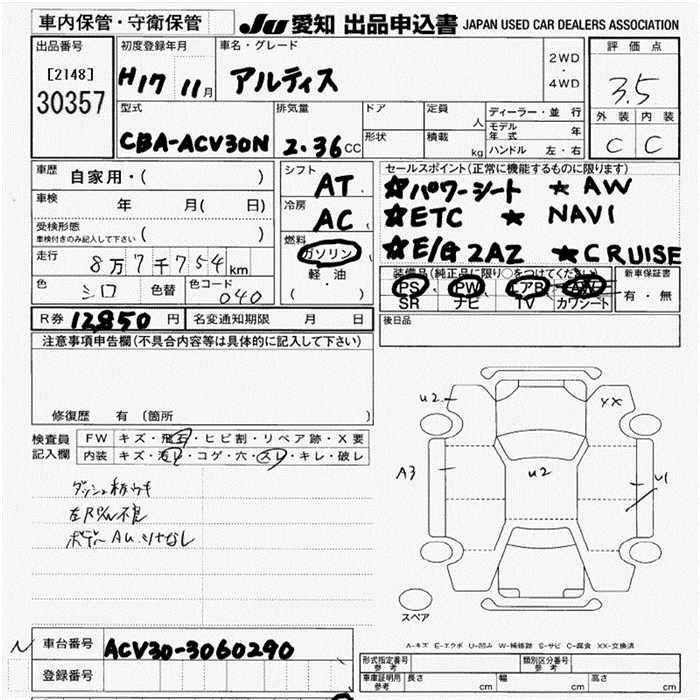 車内保管・守衛保管
JU 愛知 出品申込書 JAPAN USED CAR DEALERS ASSOCIATION
出品番号
[2148]
30357
初度登録年月
H17 11月
車名・グレード
アルティス
2WD
・
4WD
評価点
3.5
外装 内装
C C
型式
CBA-ACV30N
排気量
2.36cc
ドア
形状
定員
人
積載
kg
ディーラー・並行
モデル年式 年
ハンドル 左・右
車歴
自家用・( )
車検
年 月( 日)
受検形態
車検付きのみ記入して下さい ( )
走行
8万7千754km
色
シロ
色替
色コード
040
シフト
AT
冷房
AC
燃料
ガソリン
軽・油
( )
セールスポイント(正常に機能するものに限ります)
☆パワーシート ★AW
☆ETC ★NAVI
☆E/G 2AZ ★CRUISE
装備品(純正品に限り○をつけてください)
PS PW エアB AW
SR ナビ TV カワシート
新車保証書
有・無
R券 12,850円
名変通知期限 月 日
後日品
注意事項申告欄(不具合内容等は具体的に記入して下さい)
修復歴 有(箇所 )
検査員
記入欄
FW キズ・飛石・ヒビ割・リペア跡・X要
内装 キズ・汚レ・コゲ・穴・スレ・キレ・破レ
ダッシュ板ウキ
ボデーAUソナなし
U2
XX
A3
U2
U1
スペア
A-キズ E-エクボ U-凹み W-補修跡 S-サビ C-腐食 XX-交換済
N
車台番号
ACV30-3060290
登録番号
形式指定番号
参考
類別区分番号
参考
車庫証明用
参考
長さ cm
幅 cm
高さ cm